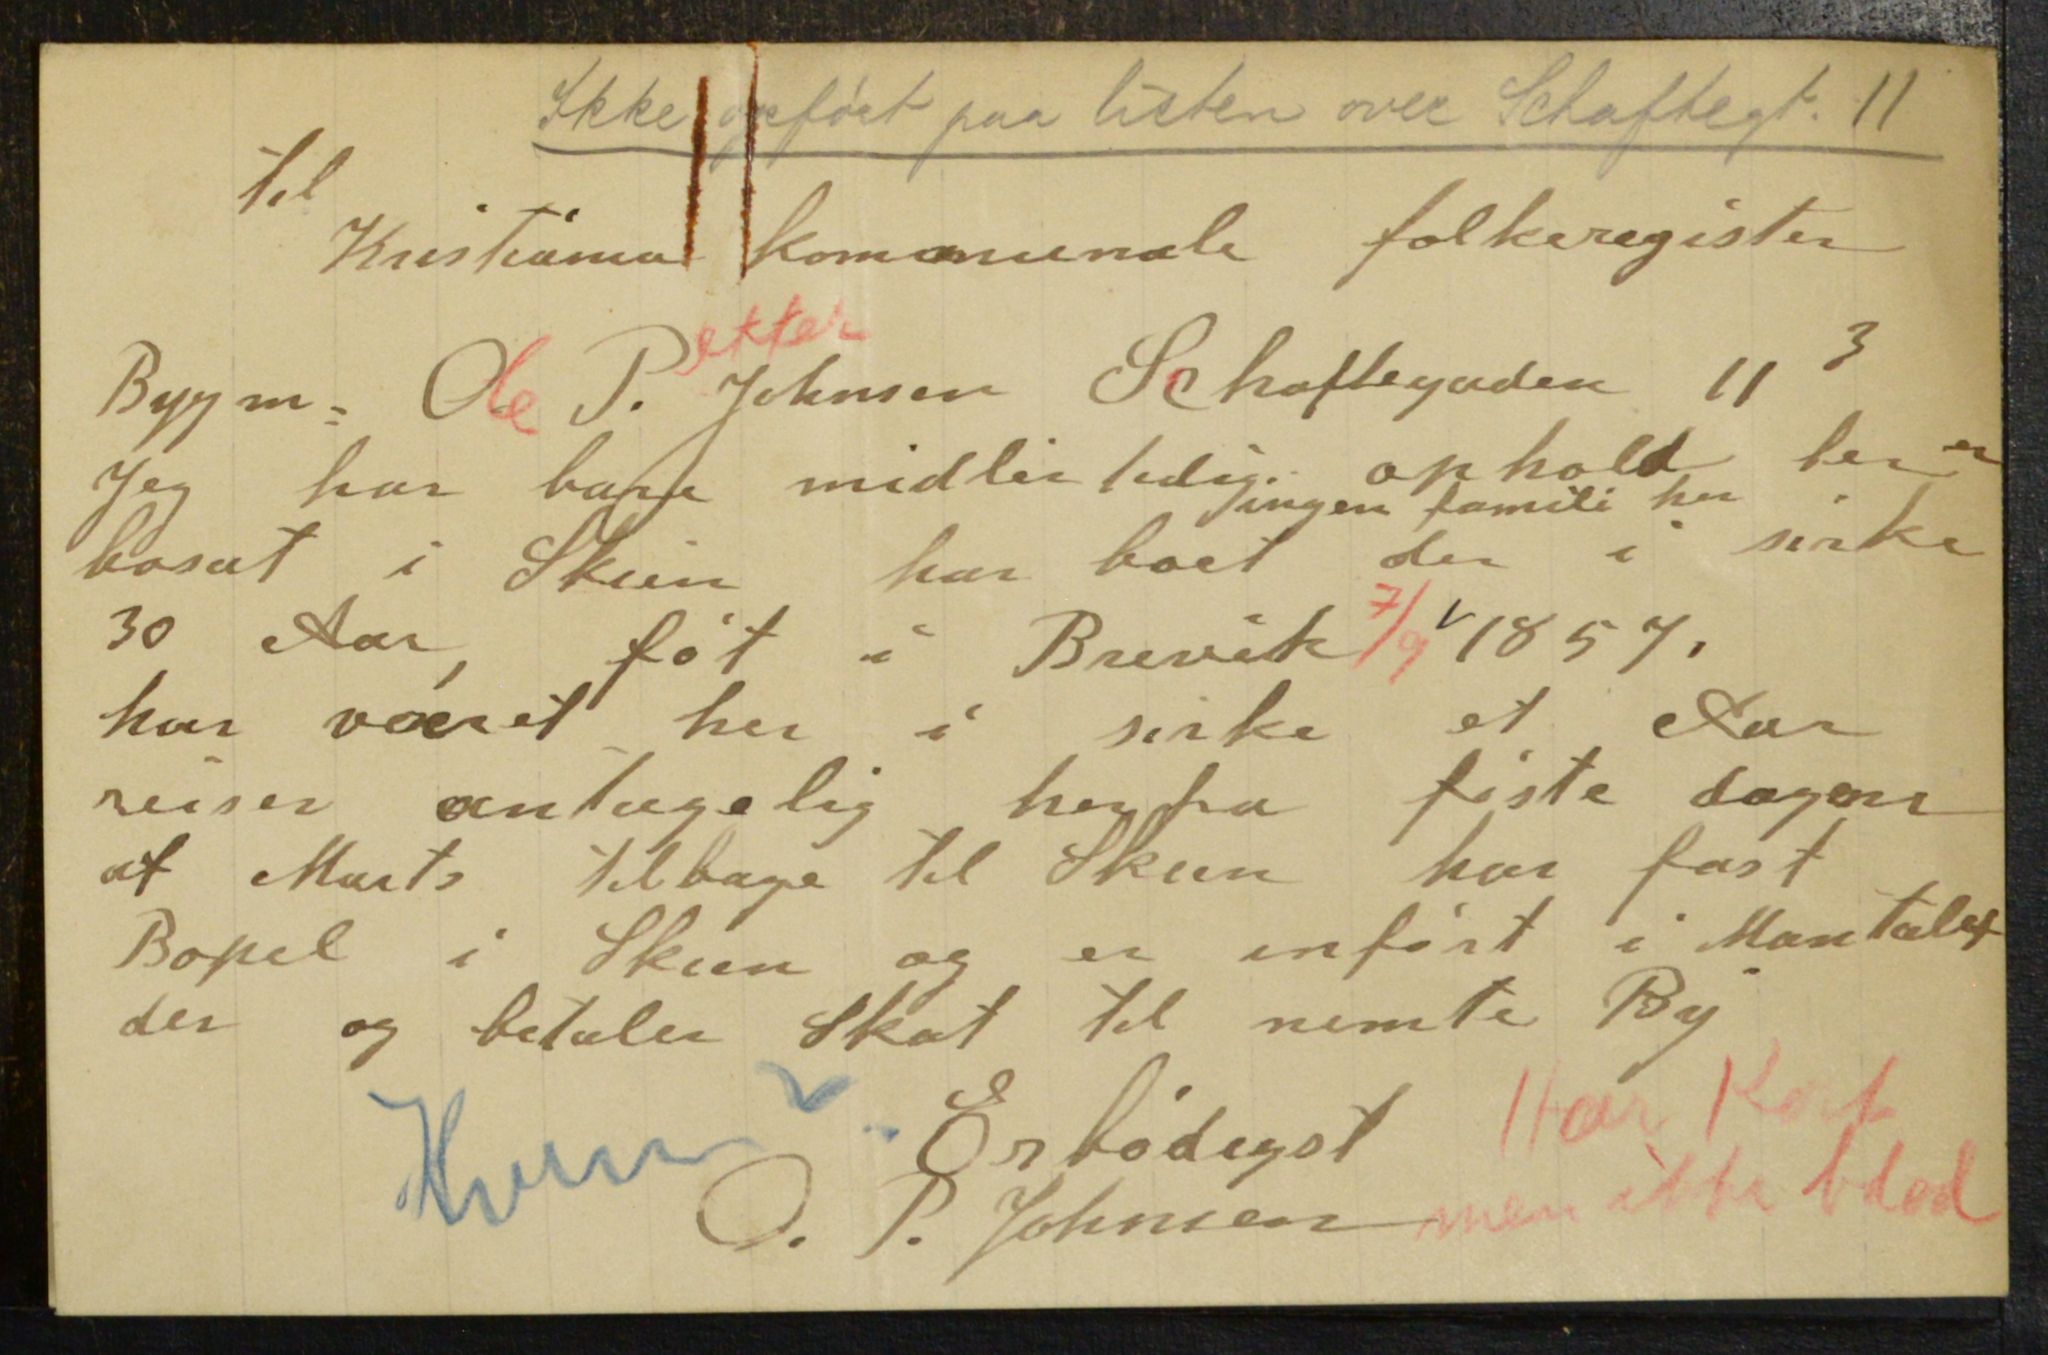 Ikke opført paa listen over Schaftegt. 11
til
Kristiania kommunale folkeregister
Bygm. Ole P.etter Johnsen Schaftegaden 11 3
Jeg har bare midlertidig ophold her er
ingen famili her
bosat i Skien har boet der i sirke
30 Aar, føt i Brevik 7/9 1857.
har været her i sirke et Aar
reiser antagelig herfra fiste dagene
af Marts tilbage til Skien har fast
Bopel i Skien og er inført i Mantalet
der og betaler Skat til nemte By
Erbødigst
O. P. Johnsen
Har Kort
men ikke blad